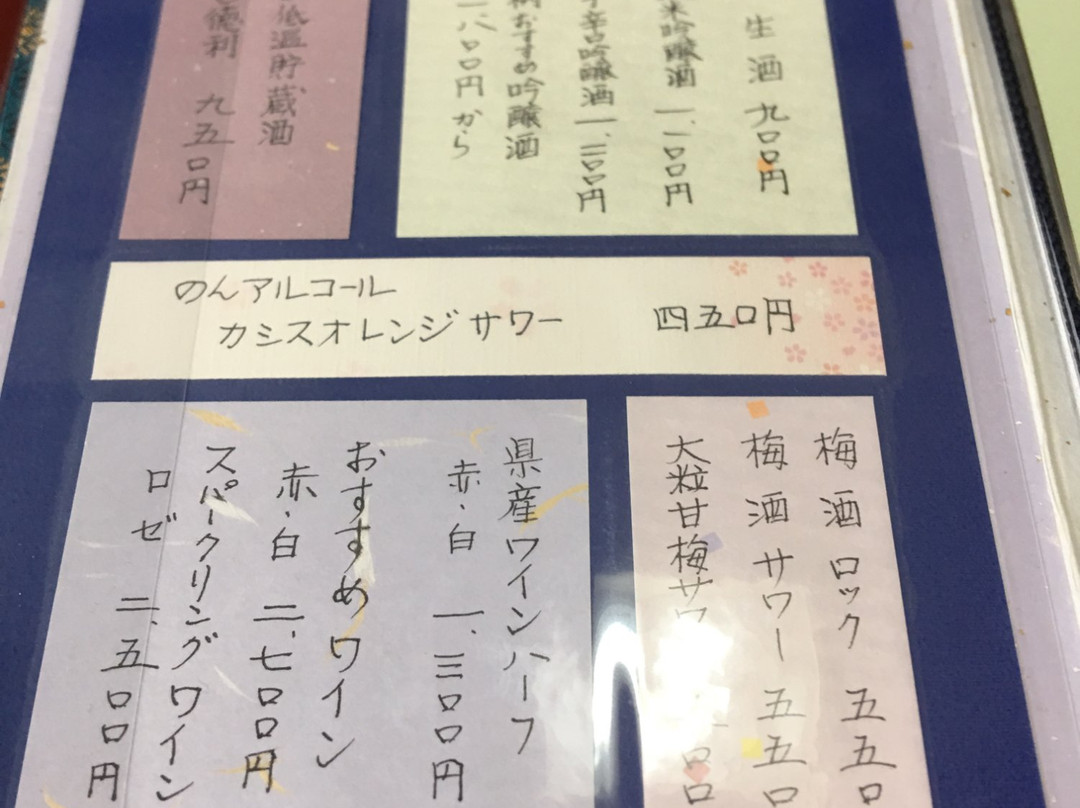 生酒 九〇〇円
米吟醸酒 一、一〇〇円
辛口吟醸酒 一、三〇〇円
おすすめ吟醸酒
一、八〇〇円から
低温貯蔵酒
徳利 九五〇円
のんアルコール
カシスオレンジサワー 四五〇円
梅酒ロック 五五〇
梅酒サワー 五五〇
大粒甘梅サワ
県産ワインハーフ
赤・白 一、三〇〇円
おすすめワイン
赤・白 二、七〇〇円
スパークリングワイン
ロゼ 二、五〇〇円